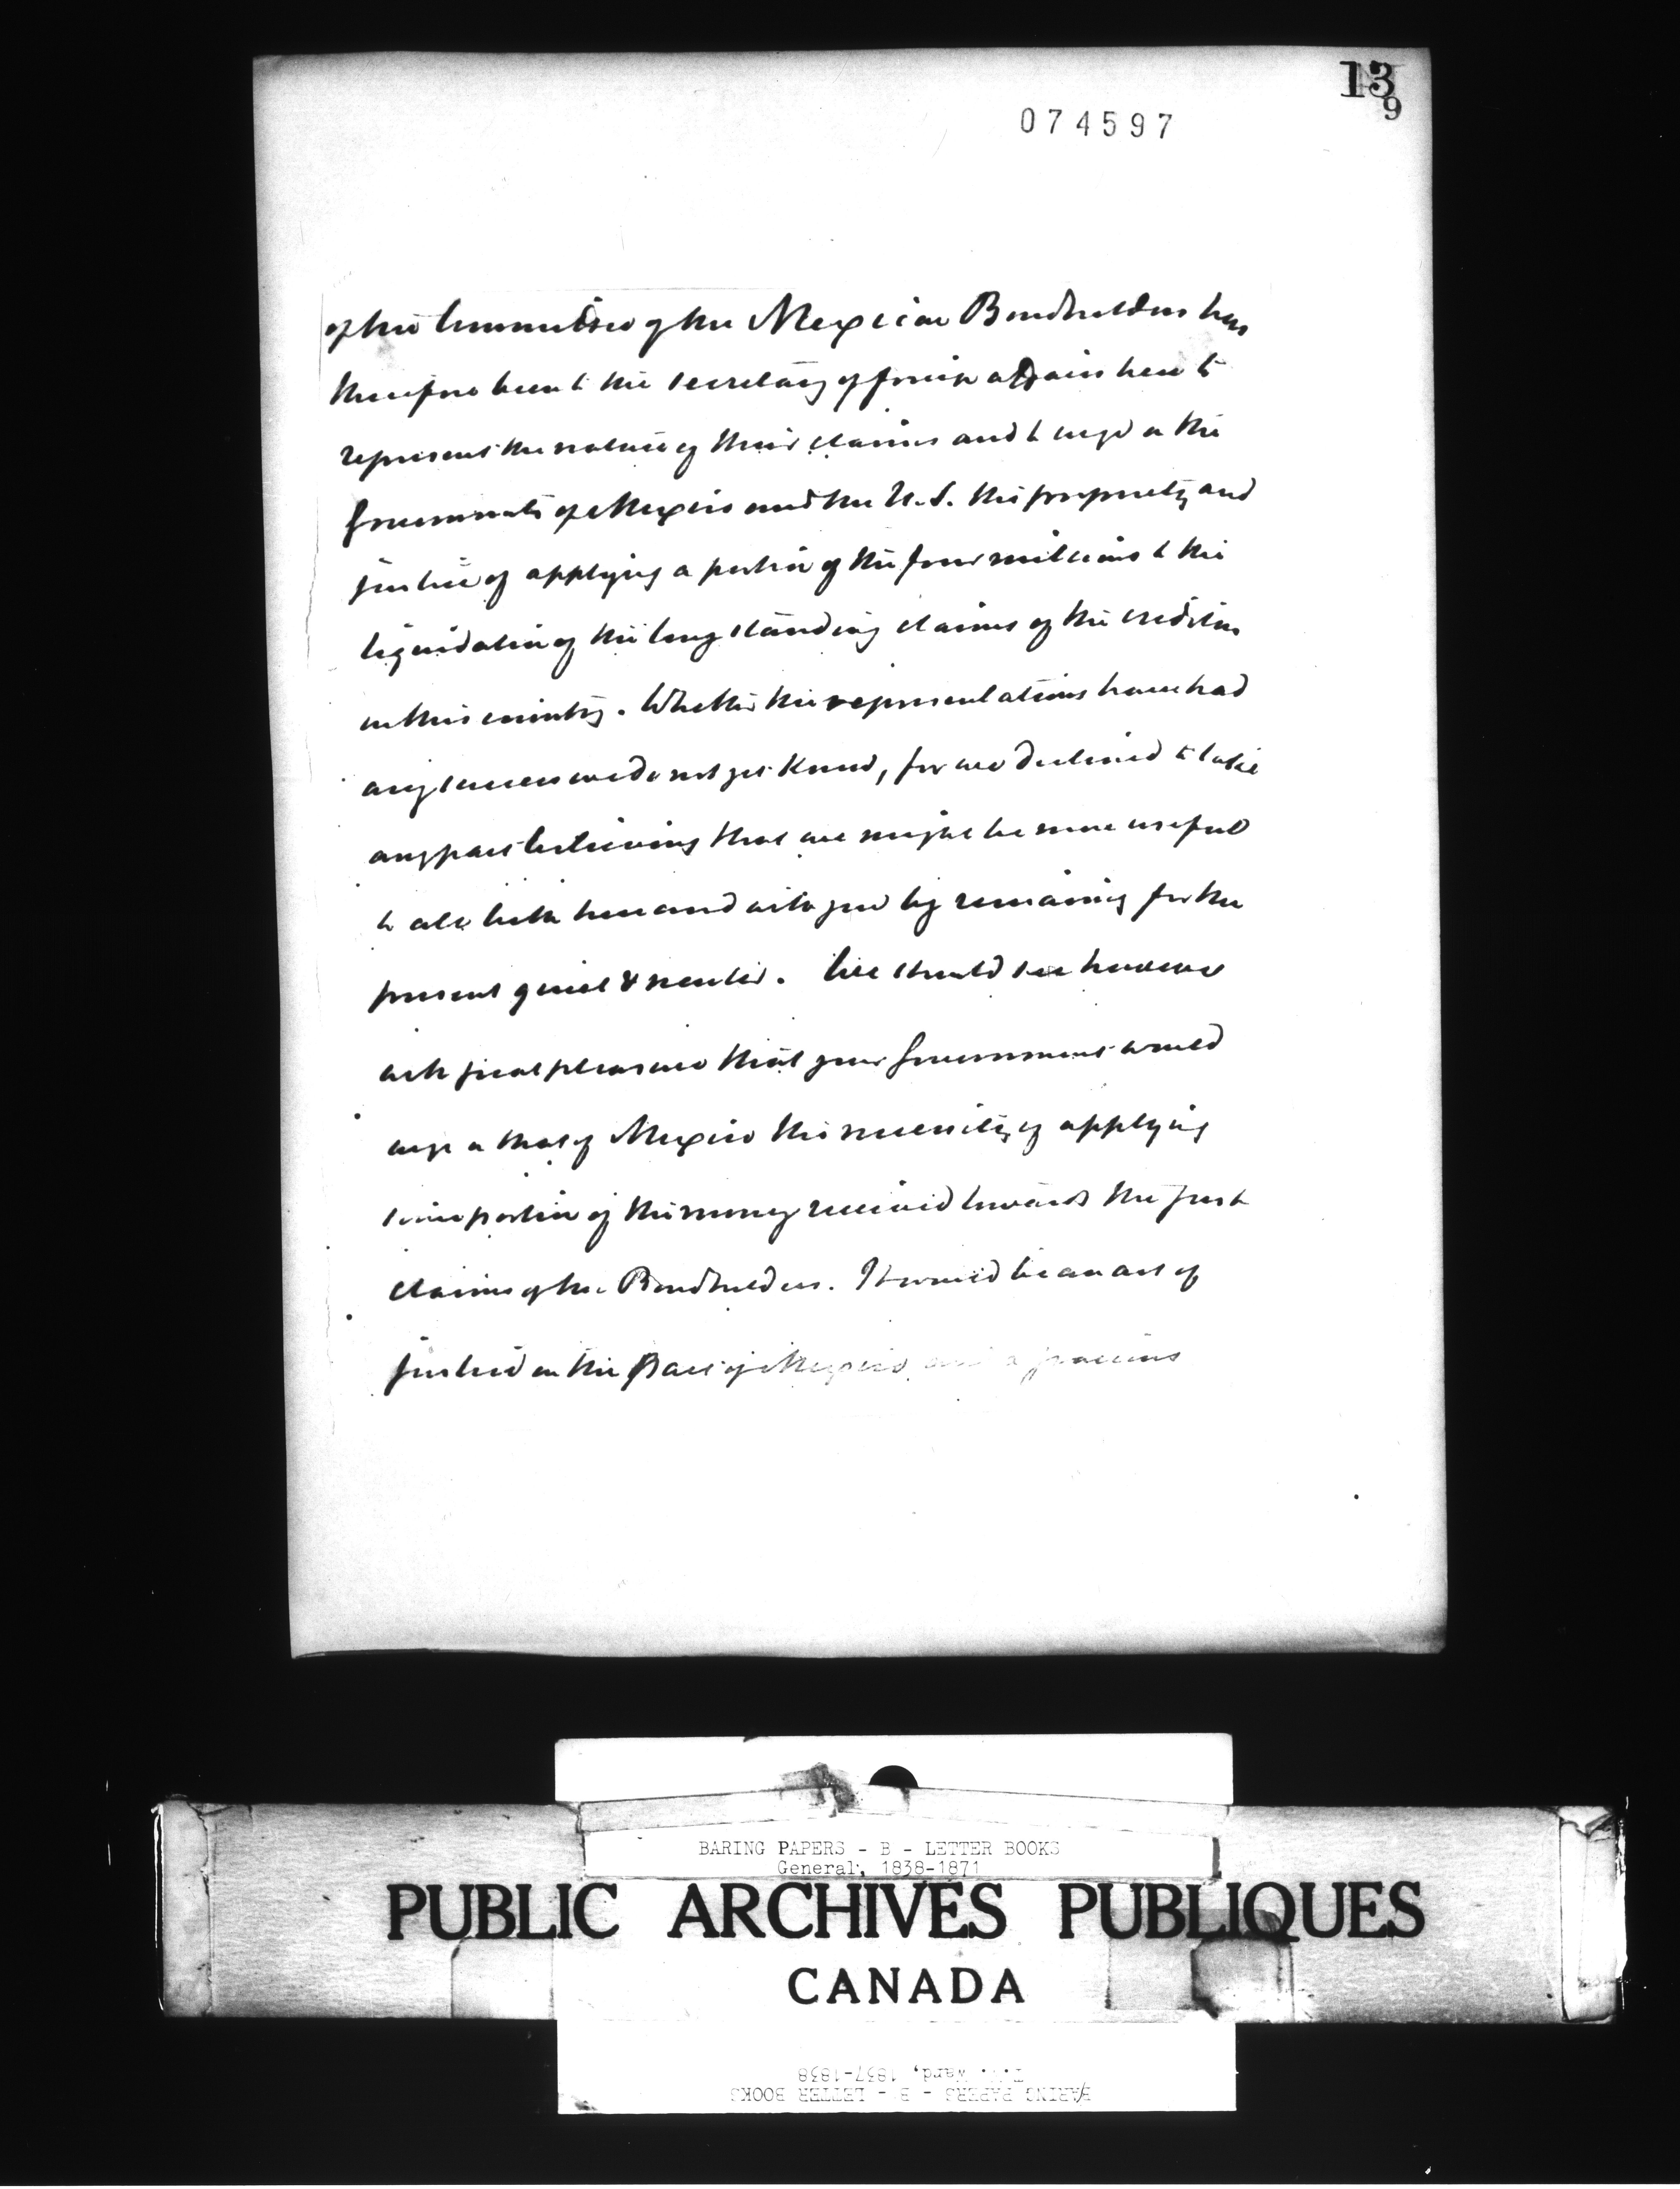 13
9
074597
of the Committee of the Mexican Bondholders has
therefore been to the Secretary of foreign affairs here to
represent the nature of their claims and to urge on the
Governments of Mexico and the U.S. the propriety and
justice of applying a portion of the four millions to the
liquidation of the long standing claims of the creditors
in this country. Whether the representations have had
any success we do not yet know, for we declined to take
any part believing that we might be more useful
to all both here and with you by remaining for the
present quiet & neuter. We should see however
with great pleasure that your Government would
urge on that of Mexico the necessity of applying
some portion of the money received towards the just
claims of the Bondholders. It would be an act of
justice on the part of Mexico and a gracious
BARING PAPERS - B - LETTER BOOKS
General, 1838-1871
PUBLIC ARCHIVES PUBLIQUES
CANADA
T.W. Ward, 1837-1838
BARING PAPERS - B - LETTER BOOKS